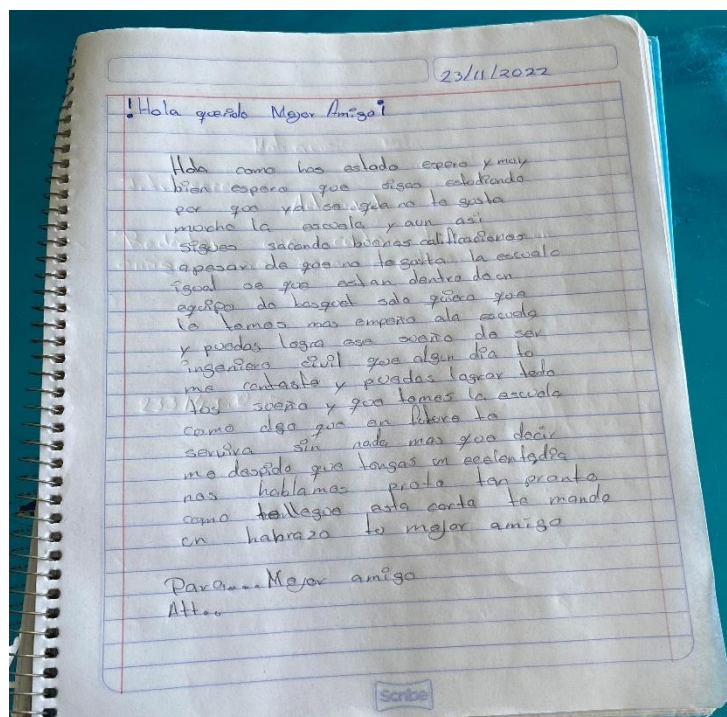 23/11/2022
!Hola querido Mejor Amigo¡
Hola como has estado espero y muy
bien espero que sigas estudiando
por que ya se que no te gusta
mucho la escuela y aun asi
sigues sacando buenas calificaciones
apesar de que no te gusta la escuela
igual se que estan dentro de un
equipo de basquet solo quiero que
le tomes mas empeño ala escuela
y puedas logra ese sueño de ser
ingeniero civil que algun dia tu
me contaste y puedas lograr todo
tus sueño y que tomes la escuela
como algo que en futuro te
servira sin nada mas que decir
me despido que tengas un eccelente dia
nos hablamos proto tan pronto
como te llegue esta carta te mando
un habrazo tu mejor amigo
Para.... Mejor amigo
Att..
Scribe